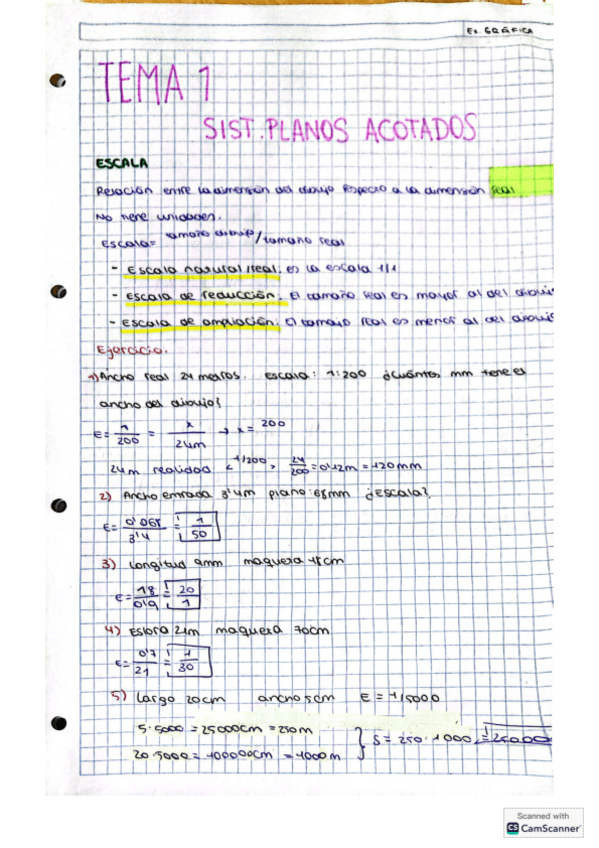 Ex GRÁFICA
TEMA 1
SIST. PLANOS ACOTADOS
ESCALA
Relación entre la dimensión del dibujo respecto a la dimensión real
No tiene unidades.
Escala= tamaño dibujo/tamaño real
- Escala natural/real: es la escala 1/1
- Escala de reducción: El tamaño real es mayor al del dibujo
- Escala de ampliación: El tamaño real es menor al del dibujo
Ejercicio.
1) Ancho real 24 metros. escala: 1:200 ¿Cuántos mm tiene el
ancho del dibujo?
E= 1/200 = x/24m → x= 200
24m realidad < 1/200 > 24/200 = 0'12m = 120mm
2) Ancho entrada 3'4m plano: 68mm ¿Escala?
E= 0'068/3'4 = 1/50
3) Longitud 9mm maqueta 18cm
E= 18/0'9 = 20/1
4) Eslora 21m maqueta 70cm
E= 0'7/21 = 1/30
5) Largo 20cm ancho 5cm E = 1/5000
5·5000 = 25000cm = 250m
20·5000 = 100000cm = 1000m } S = 250·1000 =
Scanned with
CS CamScanner